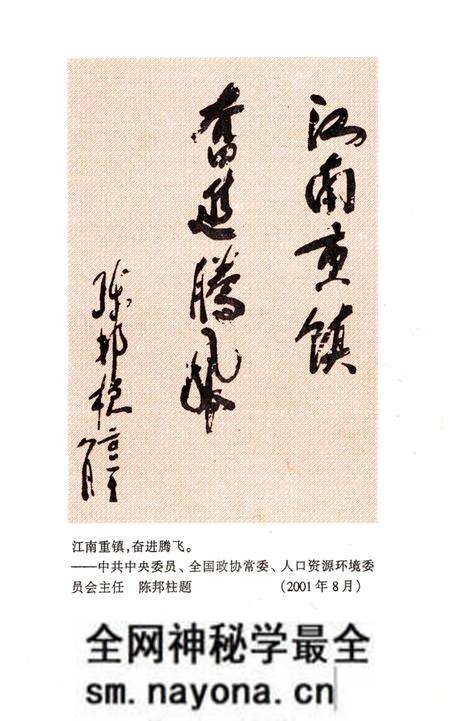 江南重鎮
奮進騰飛
陈邦柱
江南重镇,奋进腾飞。
——中共中央委员、全国政协常委、人口资源环境委
员会主任 陈邦柱题 (2001年8月)
全网神秘学最全
sm.nayona.cn